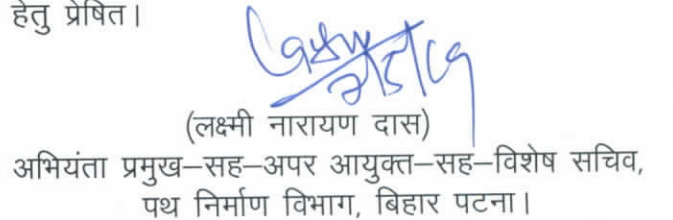 हेतु प्रेषित।
(लक्ष्मी नारायण दास)
अभियंता प्रमुख–सह–अपर आयुक्त–सह–विशेष सचिव,
पथ निर्माण विभाग, बिहार पटना।